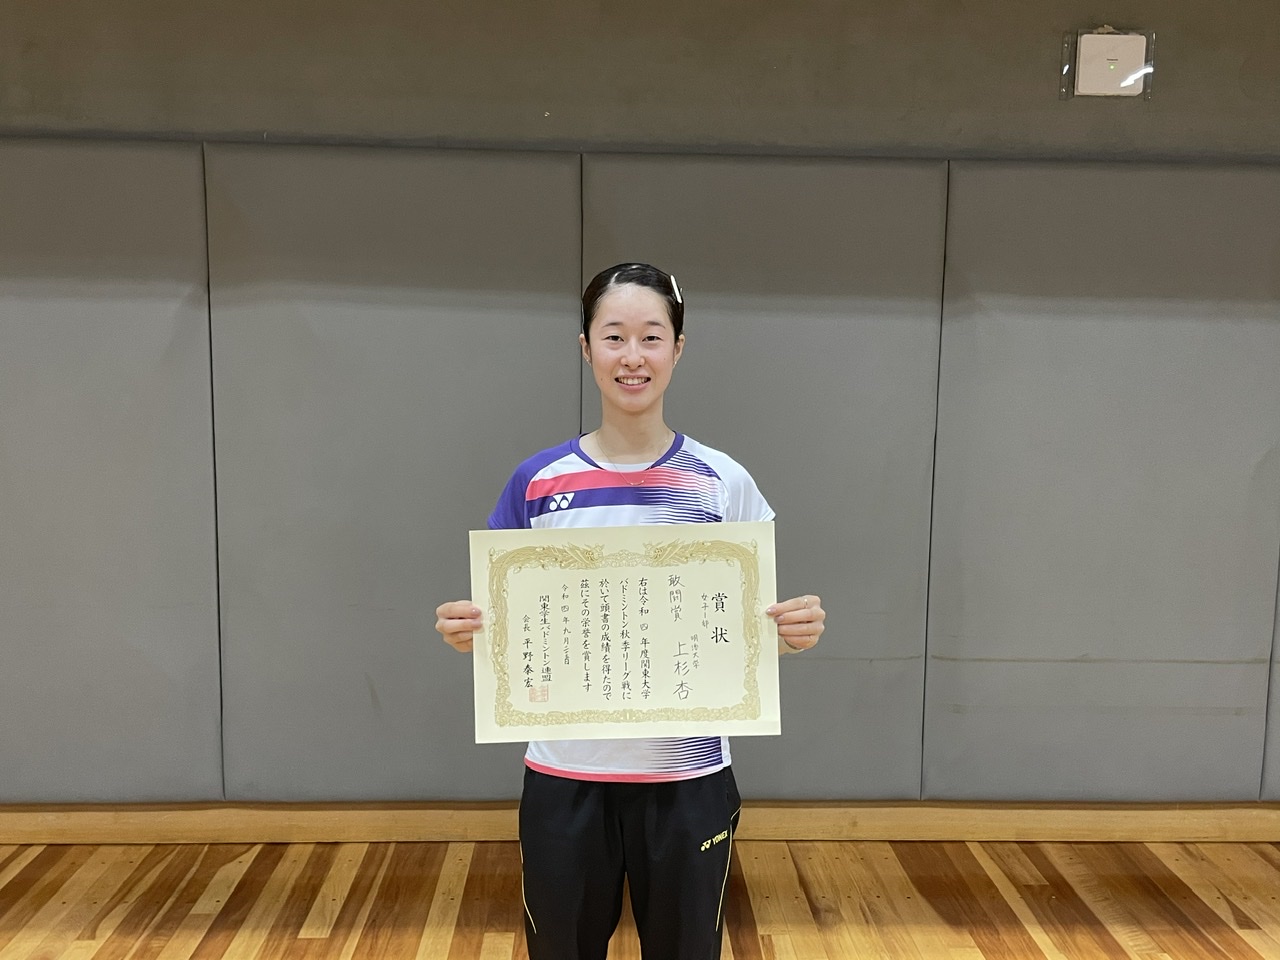 賞状
女子一部
敢闘賞
明治大学
上杉杏
右は令和四年度関東大学
バドミントン秋季リーグ戦に
於いて頭書の成績を得たので
茲にその栄誉を賞します
関東学生バドミントン連盟
会長 平野泰宏
YONEX